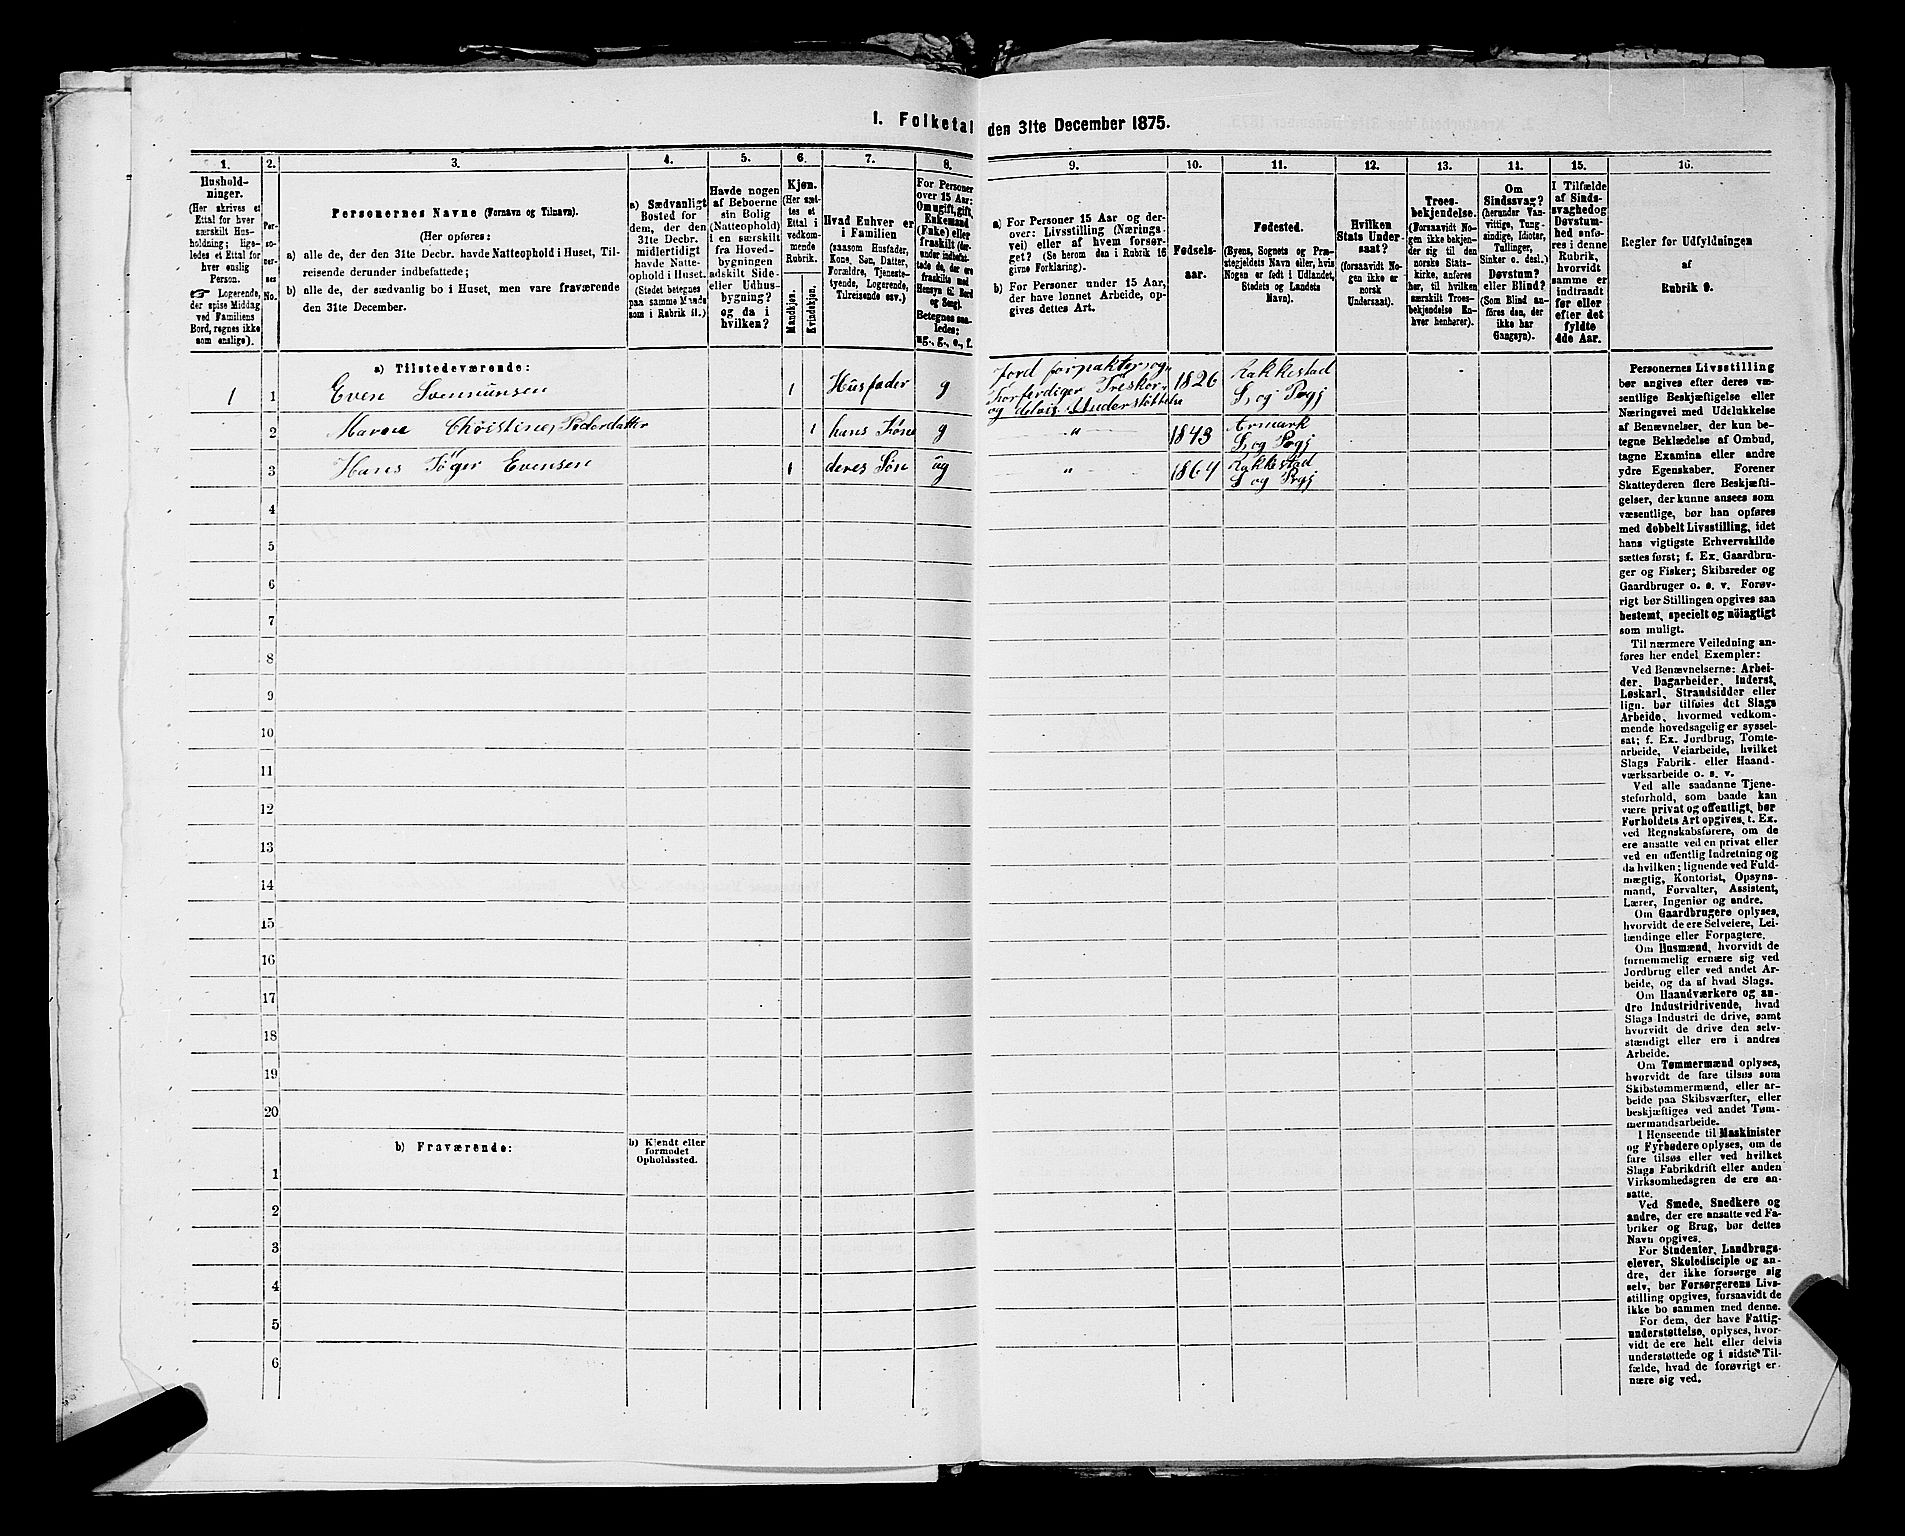 I. Folketal den 31te December 1875.
1. 2. 3. 4. 5. 6. 7. 8. 9. 10. 11. 12. 13. 14. 15. 16.
Hushold-
ninger.
(Her skrives et
Ettal for hver
særskilt Hus-
holdning; lige-
ledes et Ettal for
hver enslig
Person.
☞ Logerende,
der spise Middag
ved Familiens
Bord, regnes ikke
som enslige).
Per-
so-
ner-
nes
No.
Personernes Navne (Fornavn og Tilnavn).
(Her opføres:
a) alle de, der den 31te Decbr. havde Natteophold i Huset, Til-
reisende derunder indbefattede;
b) alle de, der sædvanlig bo i Huset, men vare fraværende
den 31te December.
a) Sædvanligt
Bosted for
dem, der den
31te Decbr.
midlertidigt
havde Natte-
ophold i Huset.
(Stedet betegnes
paa samme Maade
som i Rubrik 11.)
Havde nogen
af Beboerne
sin Bolig
(Natteophold)
i en særskilt
fra Hoved-
bygningen
adskilt Side-
eller Udhus-
bygning?
og da i
hvilken?
Kjøn.
(Her sæt-
tes et
Ettal i
vedkom-
mende
Rubrik.
Mandkjøn.
Kvindekjøn.
Hvad Enhver er
i Familien
(saasom Husfader,
Kone, Søn, Datter,
Forældre, Tjeneste-
tyende, Logerende,
Tilreisende osv.)
For Personer
over 15 Aar:
Om ugift, gift,
Enkemand
(Enke) eller
fraskilt (der-
under indbefat-
tede de, der ere
fraskilte med
Hensyn til Bord
og Seng).
Betegnes saa-
ledes:
ug., g., e., f.
a) For Personer 15 Aar og der-
over: Livsstilling (Nærings-
vei) eller af hvem forsør-
get? (Se herom den i Rubrik 16
givne Forklaring).
b) For Personer under 15 Aar,
der have lønnet Arbeide, op-
gives dettes Art.
Fødsels-
aar.
Fødested.
(Byens, Sognets og Præ-
stegjeldets Navn eller, hvis
Nogen er født i Udlandet,
Stedets og Landets
Navn).
Hvilken
Stats Under-
saat?
(forsaavidt No-
gen ikke er
norsk
Undersaat).
Troes-
bekjendelse.
(Forsaavidt No-
gen ikke bekjen-
der sig til den
norske Stats-
kirke, anføres
her, til hvilken
særskilt Troes-
bekjendelse En-
hver henhører).
Om
Sindssvag?
(herunder Van-
vittige, Tung-
sindige, Idioter,
Tullinger,
Sinker o. desl.)
Døvstum?
eller Blind?
(Som Blind an-
føres den, der
ikke har
Gangsyn).
I Tilfælde
af Sinds-
svaghed og
Døvstum-
hed anfø-
res i denne
Rubrik,
hvorvidt
samme er
indtraadt
før eller
efter det
fyldte
4de Aar.
Regler for Udfyldningen
af
Rubrik 9.
a) Tilstedeværende:
1 1 Even Svennunsen 1 Husfader g Jord forpakter og forferdiger Treskor og delvis Understøttelse 1826 Rakkestad S. og Pregj
2 Maren Christine Pedersdatter 1 hans Kone g " 1843 Ermark S. og Pregj
3 Hans Jøger Evensen 1 deres Søn ug " 1864 Rakkestad S og Pregj
4
5
6
7
8
9
10
11
12
13
14
15
16
17
18
19
20
b) Fraværende:
b) Kjendt eller
formodet
Opholdssted.
1
2
3
4
5
6
Personernes Livsstilling
bør angives efter deres væ-
sentlige Beskjæftigelse eller
Næringsvei med Udelukkelse
af Benævnelser, der kun be-
tegne Beklædelse af Ombud,
tagne Examina eller andre
ydre Egenskaber. Forener
Skatteyderen flere Beskjæfti-
gelser, der kunne ansees som
væsentlige, bør han opføres
med dobbelt Livsstilling, idet
hans vigtigste Erhvervskilde
sættes først; f. Ex. Gaardbru-
ger og Fisker; Skibsreder og
Gaardbruger o. s. v. Forøv-
rigt bør Stillingen opgives saa
bestemt, specielt og nøiagtigt
som muligt.
Til nærmere Veiledning an-
føres her endel Exempler:
Ved Benævnelserne: Arbei-
der, Dagarbeider, Inderst,
Løskarl, Strandsidder eller
lign. bør tilføies det Slags
Arbeide, hvormed vedkom-
mende hovedsagelig er syssel-
sat; f. Ex. Jordbrug, Tomte-
arbeide, Veiarbeide, hvilket
Slags Fabrik- eller Haand-
værksarbeide o. s. v.
Ved alle saadanne Tjene-
steforhold, som baade kan
være privat og offentligt, bør
Forholdets Art opgives, t. Ex.
ved Regnskabsførere, om de
ere ansatte ved en privat eller
ved en offentlig Indretning og
da hvilken; lignende ved Fuld-
mægtig, Kontorist, Opsyns-
mand, Forvalter, Assistent,
Lærer, Ingeniør og andre.
Om Gaardbrugere oplyses,
hvorvidt de ere Selveiere, Lei-
lændinge eller Forpagtere.
Om Husmænd, hvorvidt de
fornemmelig ernære sig ved
Jordbrug eller ved andet Ar-
beide, og da af hvad Slags.
Om Haandværkere og an-
dre Industridrivende, hvad
Slags Industri de drive, samt
hvorvidt de drive den selv-
stændigt eller ere i andres
Arbeide.
Om Tømmermænd oplyses,
hvorvidt de fare tilsøs som
Skibstømmermænd, eller ar-
beide paa Skibsværfter, eller
beskjæftiges ved andet Tøm-
mermandsarbeide.
I Henseende til Maskinister
og Fyrbødere oplyses, om de
fare tilsøs eller ved hvilket
Slags Fabrikdrift eller anden
Virksomhedsgren de ere an-
satte.
Ved Smede, Snedkere og
andre, der ere ansatte ved Fa-
briker og Brug, bør dettes
Navn opgives.
For Studenter, Landbrugs-
elever, Skoledisciple og an-
dre, der ikke forsørge sig
selv, bør Forsørgerens Livs-
stilling opgives, forsaavidt de
ikke bo sammen med denne.
For dem, der have Fattig-
understøttelse, oplyses, hvor-
vidt de ere helt eller delvis
understøttede og i sidste Til-
fælde, hvad de forøvrigt er-
nære sig ved.